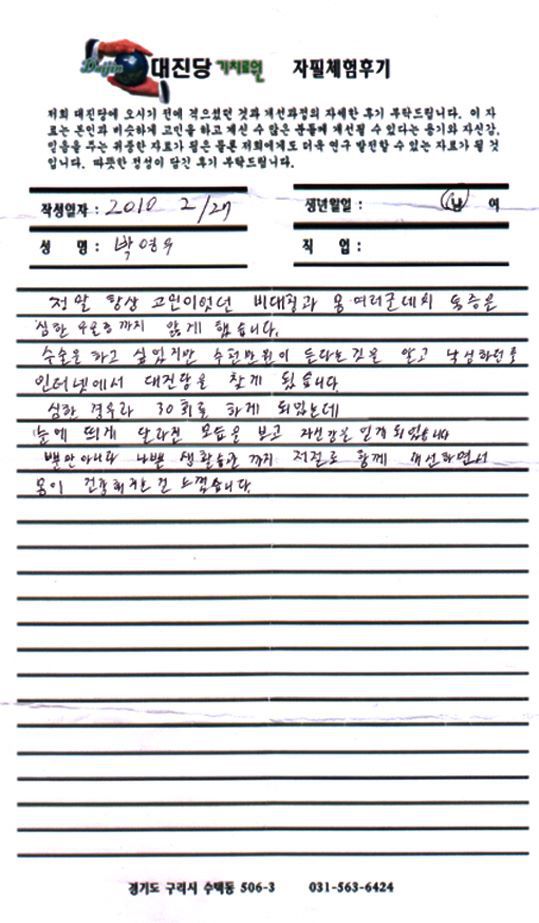 Daijin 대진당 기치료원 자필체험후기
저희 대진당에 오시기 전에 겪으셨던 것과 개선과정의 자세한 후기 부탁드립니다. 이 자
료는 본인과 비슷하게 고민을 하고 계신 수 많은 분들께 개선될 수 있다는 용기와 자신감,
믿음을 주는 귀중한 자료가 됨은 물론 저희에게도 더욱 연구 발전할 수 있는 자료가 될 것
입니다. 따뜻한 정성이 담긴 후기 부탁드립니다.
작성일자 : 2010 2/27 생년월일 : 남 여
성 명 : 박영우 직 업 :
정말 항상 고민이었던 비대칭과 몸 여러군데의 통증은
심한 우울증까지 앓게 했습니다.
수술을 하고 싶었지만 수천만원이 든다는것을 알고 낙심하던중
인터넷에서 대진당을 찾게 됬습니다
심한 경우라 30회를 하게 되었는데
눈에 띄게 달라진 모습을 보고 자신감을 얻게 되었습니다
뿐만아니라 나쁜 생활습관까지 저절로 함께 개선하면서
몸이 건강해지는걸 느꼈습니다.
경기도 구리시 수택동 506-3 031-563-6424